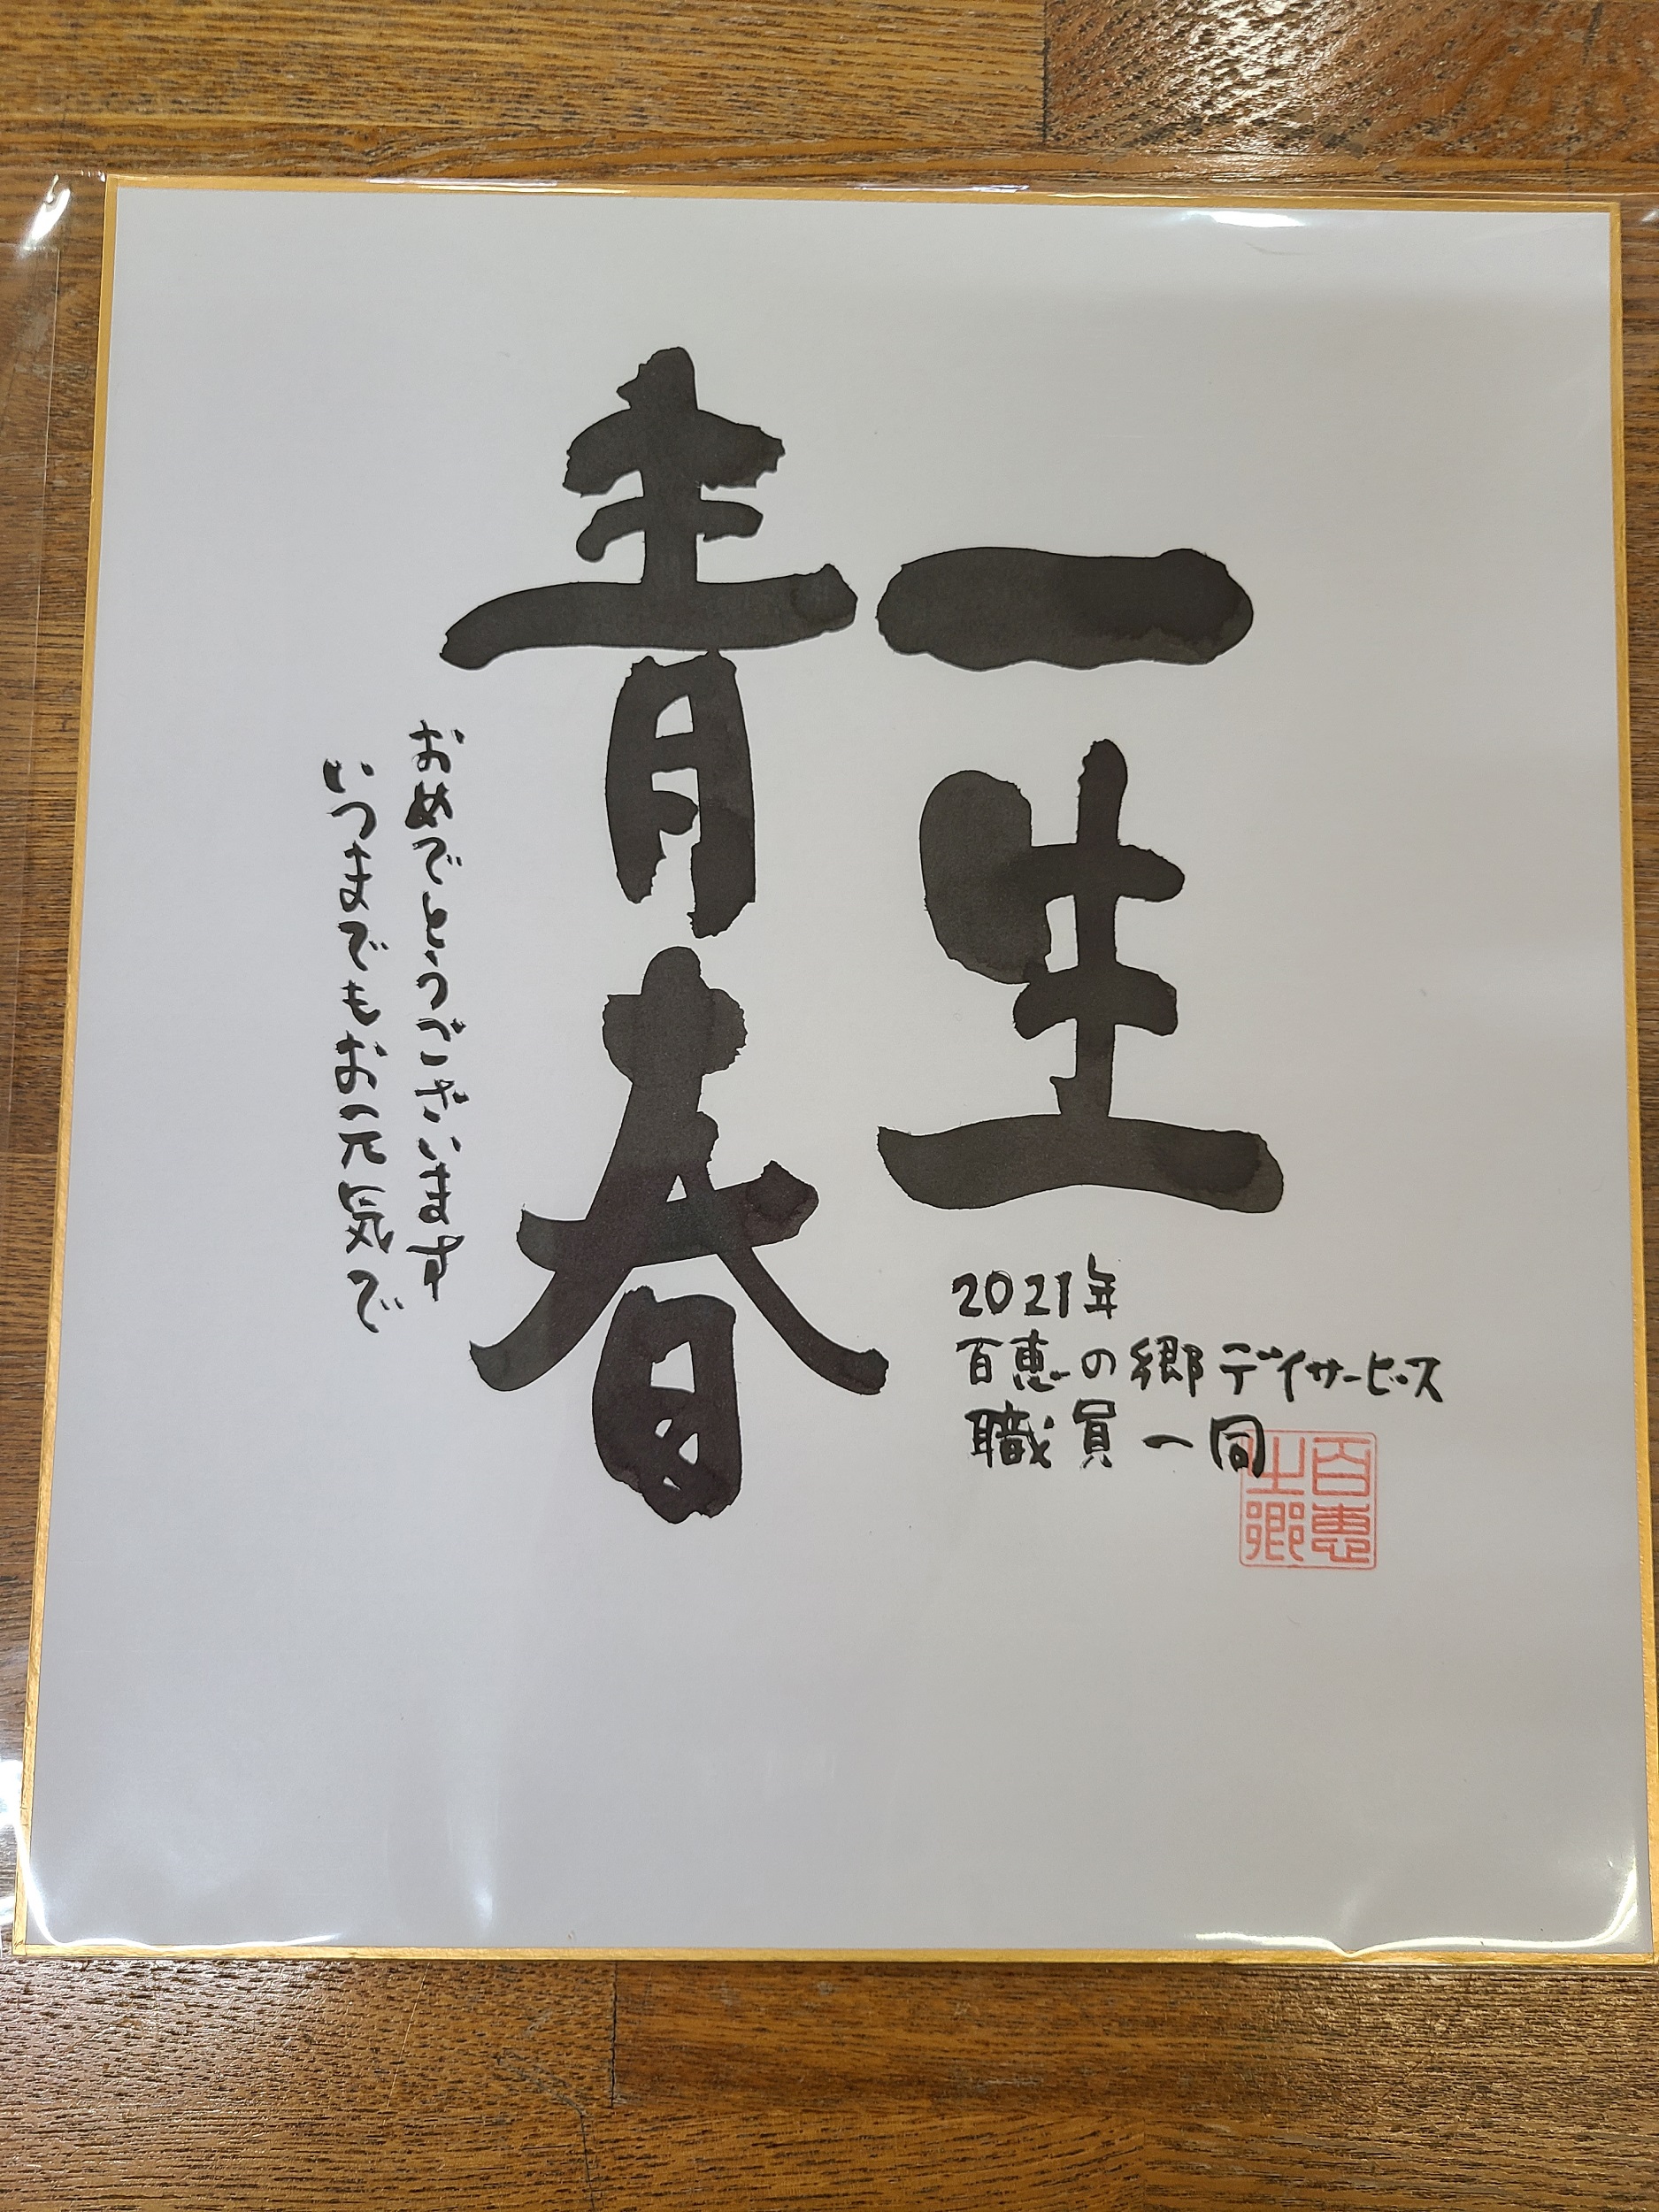 一生
青春
おめでとうございます
いつまでもお元気で
2021年
百恵の郷デイサービス
職員一同
百恵
之郷